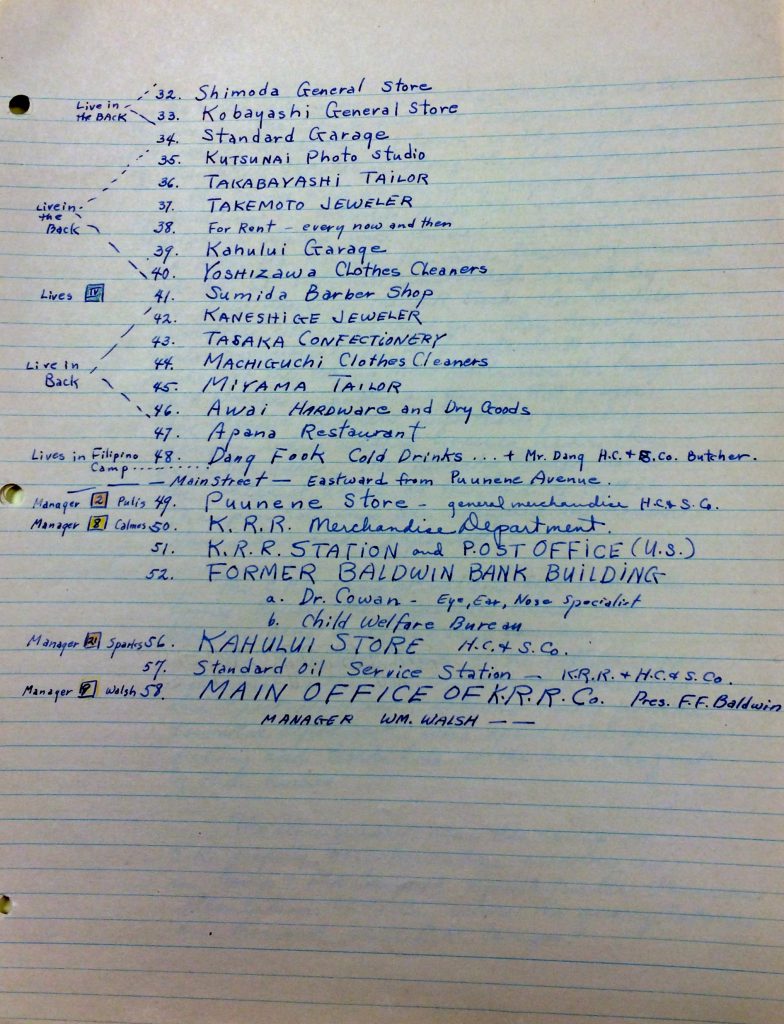 32. Shimoda General Store
Live in the BACK 33. Kobayashi General Store
34. Standard Garage
35. KUTSUNAI Photo Studio
36. TAKABAYASHI TAILOR
Live in the Back 37. TAKEMOTO JEWELER
38. For Rent - every now and then
39. Kahului Garage
40. YOSHIZAWA Clothes Cleaners
Lives IV 41. Sumida Barber Shop
42. KANESHIGE JEWELER
43. TASAKA CONFECTIONERY
Live in Back 44. MACHIGUCHI Clothes Cleaners
45. MIYAMA TAILOR
46. AWAI HARDWARE and Dry Goods
47. Apana Restaurant
Lives in Filipino Camp 48. Dang Fook Cold Drinks ... + Mr. Dang H.C. + S. Co. Butcher.
— Main Street — Eastward from Puunene Avenue.
Manager 2 Pulis 49. Puunene Store - general merchandise H.C. & S. Co.
Manager 8 Calmes 50. K. R. R. Merchandise Department.
51. K.R.R. STATION and POST OFFICE (U.S.)
52. FORMER BALDWIN BANK BUILDING
a. Dr. Cowan - Eye, Ear, Nose Specialist
b. Child Welfare Bureau
Manager 21 Sparks 56. KAHULUI STORE H.C. & S. Co.
57. Standard Oil Service Station - K.R.R. + H.C. & S. Co.
Manager 9 Walsh 58. MAIN OFFICE OF K.R.R. Co. Pres. F.F. Baldwin
MANAGER WM. WALSH — —